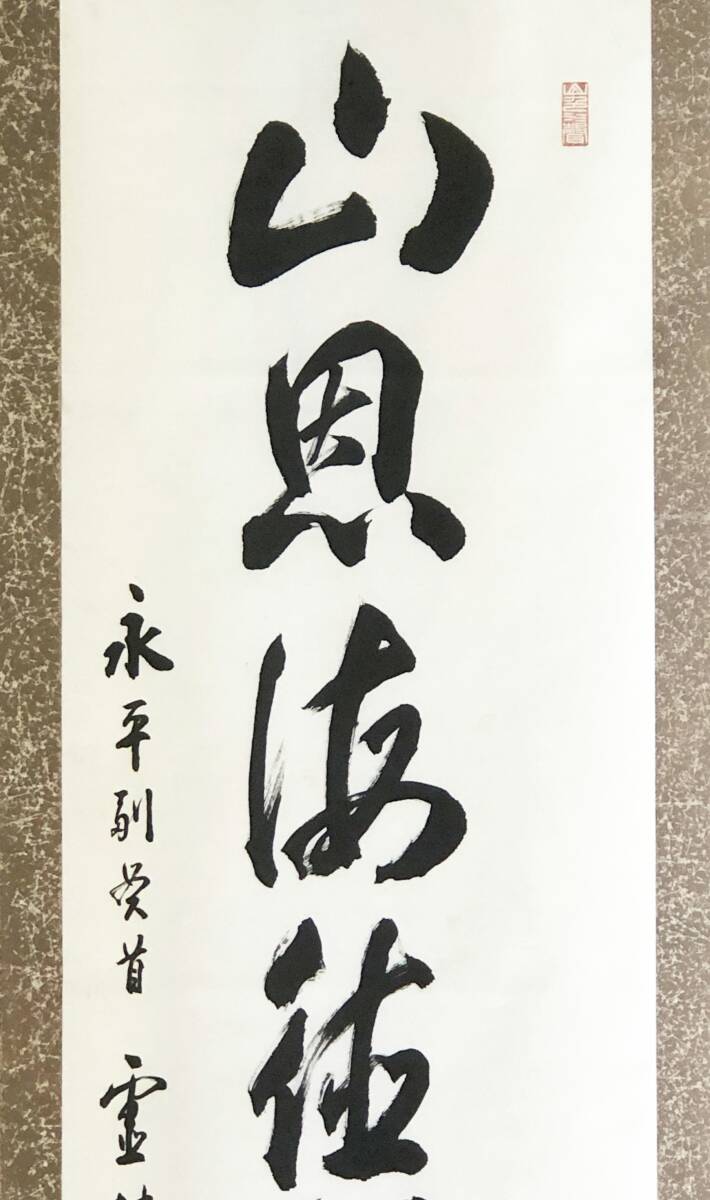 山恩海徳
永平副貫首 霊